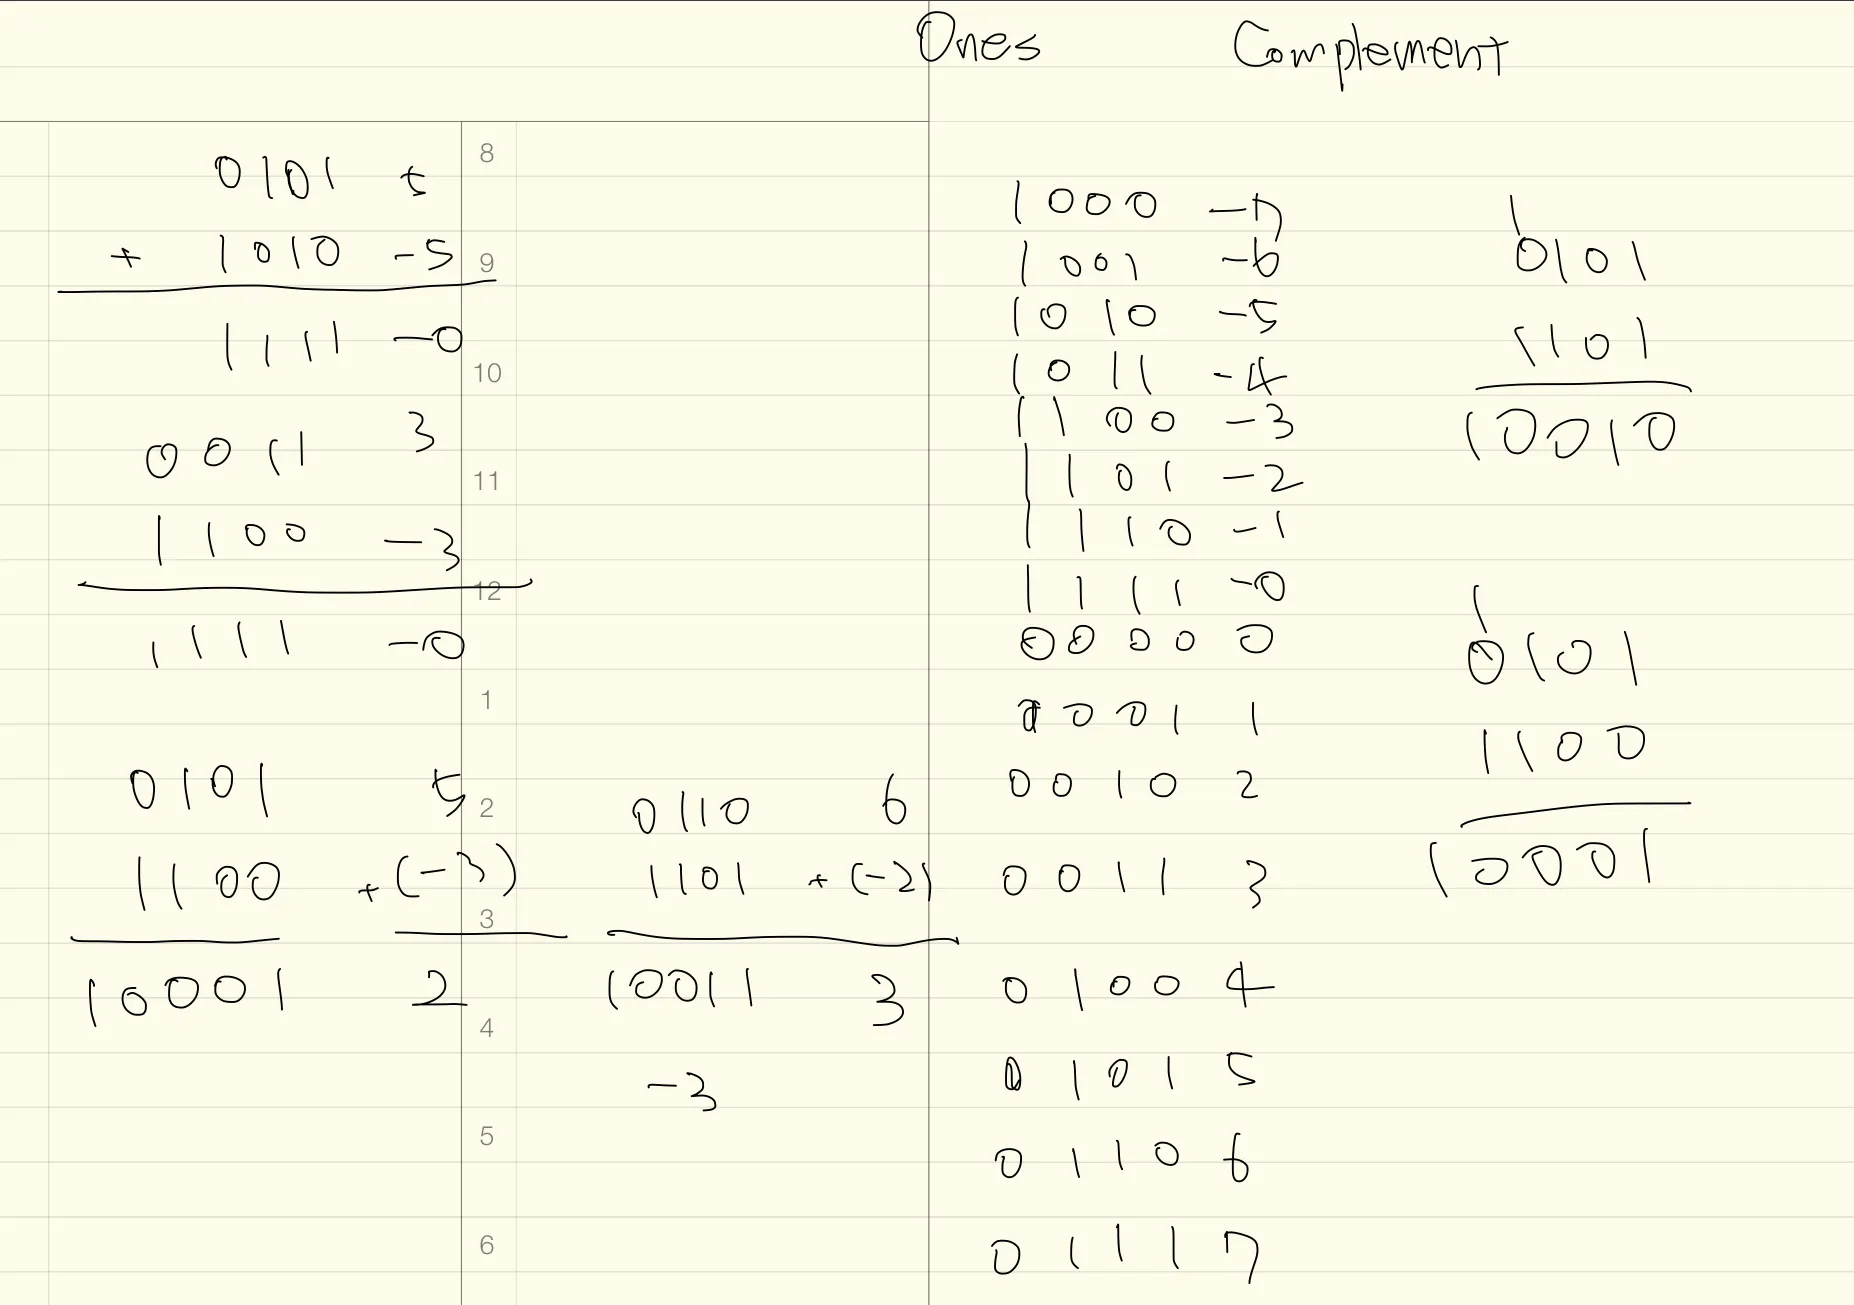 Ones Complement
8
0101 5
+ 1010 -5
9
1111 -0
10
0011 3
11
1100 -3
12
1111 -0
1
0101 5
2
1100 +(-3)
3
10001 2
4
5
6
0110 6
1101 +(-2)
10011 3
-3
1000 -7
1001 -6
1010 -5
1011 -4
1100 -3
1101 -2
1110 -1
1111 -0
0000 0
0001 1
0010 2
0011 3
0100 4
0101 5
0110 6
0111 7
1
0101
1101
10010
1
0101
1100
10001